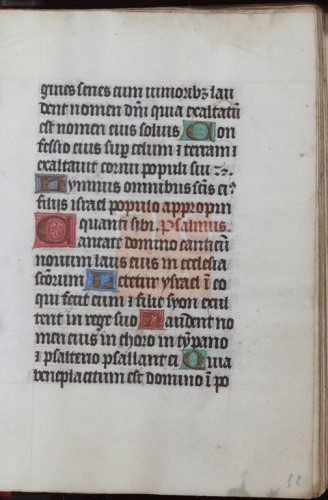 gines senes cum iunioribꝫ lau
dent nomen dn̄i quia exaltatū
est nomen eius solius Con
fessio eius sup̄ celum ⁊ terram ⁊
exaltauit cornu populi sui
Hymnus omnibus sc̄is ei⁹
filijs israel populo appropin
quanti sibi. Psalmus.
Cantate domino canticū
nouum laus eius in ecclesia
sc̄orum Letetur ysrael ī eo
qui fecit eum ⁊ filie syon exul
tent in rege suo Laudent no
men eius in choro in tȳpano
⁊ psalterio psallant ei Quia
beneplacitum est domino ī po
52